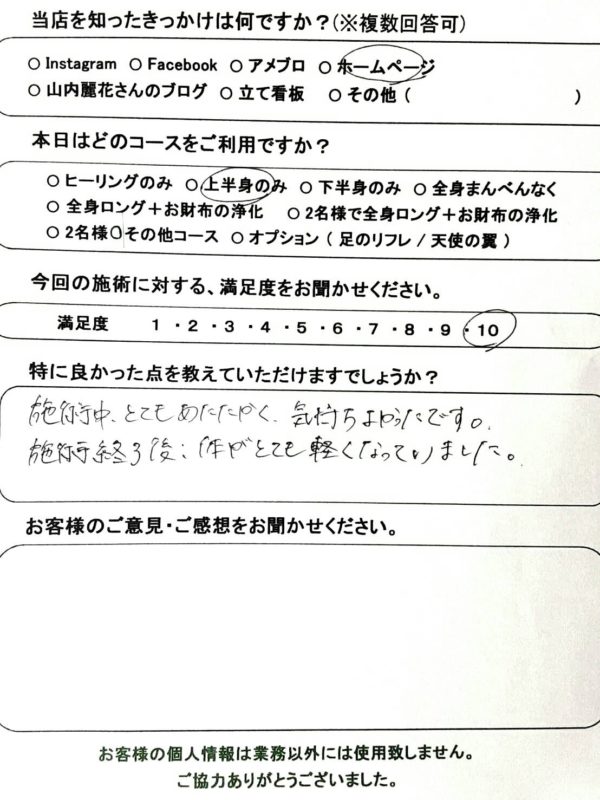 当店を知ったきっかけは何ですか？(※複数回答可)
○ Instagram ○ Facebook ○ アメブロ ○ ホームページ
○ 山内麗花さんのブログ ○ 立て看板 ○ その他 ( )
本日はどのコースをご利用ですか？
○ ヒーリングのみ ○ 上半身のみ ○ 下半身のみ ○ 全身まんべんなく
○ 全身ロング＋お財布の浄化 ○ 2名様で全身ロング＋お財布の浄化
○ 2名様 ○ その他コース ○ オプション ( 足のリフレ / 天使の翼 )
今回の施術に対する、満足度をお聞かせください。
満足度 1 ・ 2 ・ 3 ・ 4 ・ 5 ・ 6 ・ 7 ・ 8 ・ 9 ・ 10
特に良かった点を教えていただけますでしょうか？
施術中、とてもあたたかく、気持ちよかったです。
施術終了後、体がとても軽くなっていました。
お客様のご意見・ご感想をお聞かせください。
お客様の個人情報は業務以外には使用致しません。
ご協力ありがとうございました。